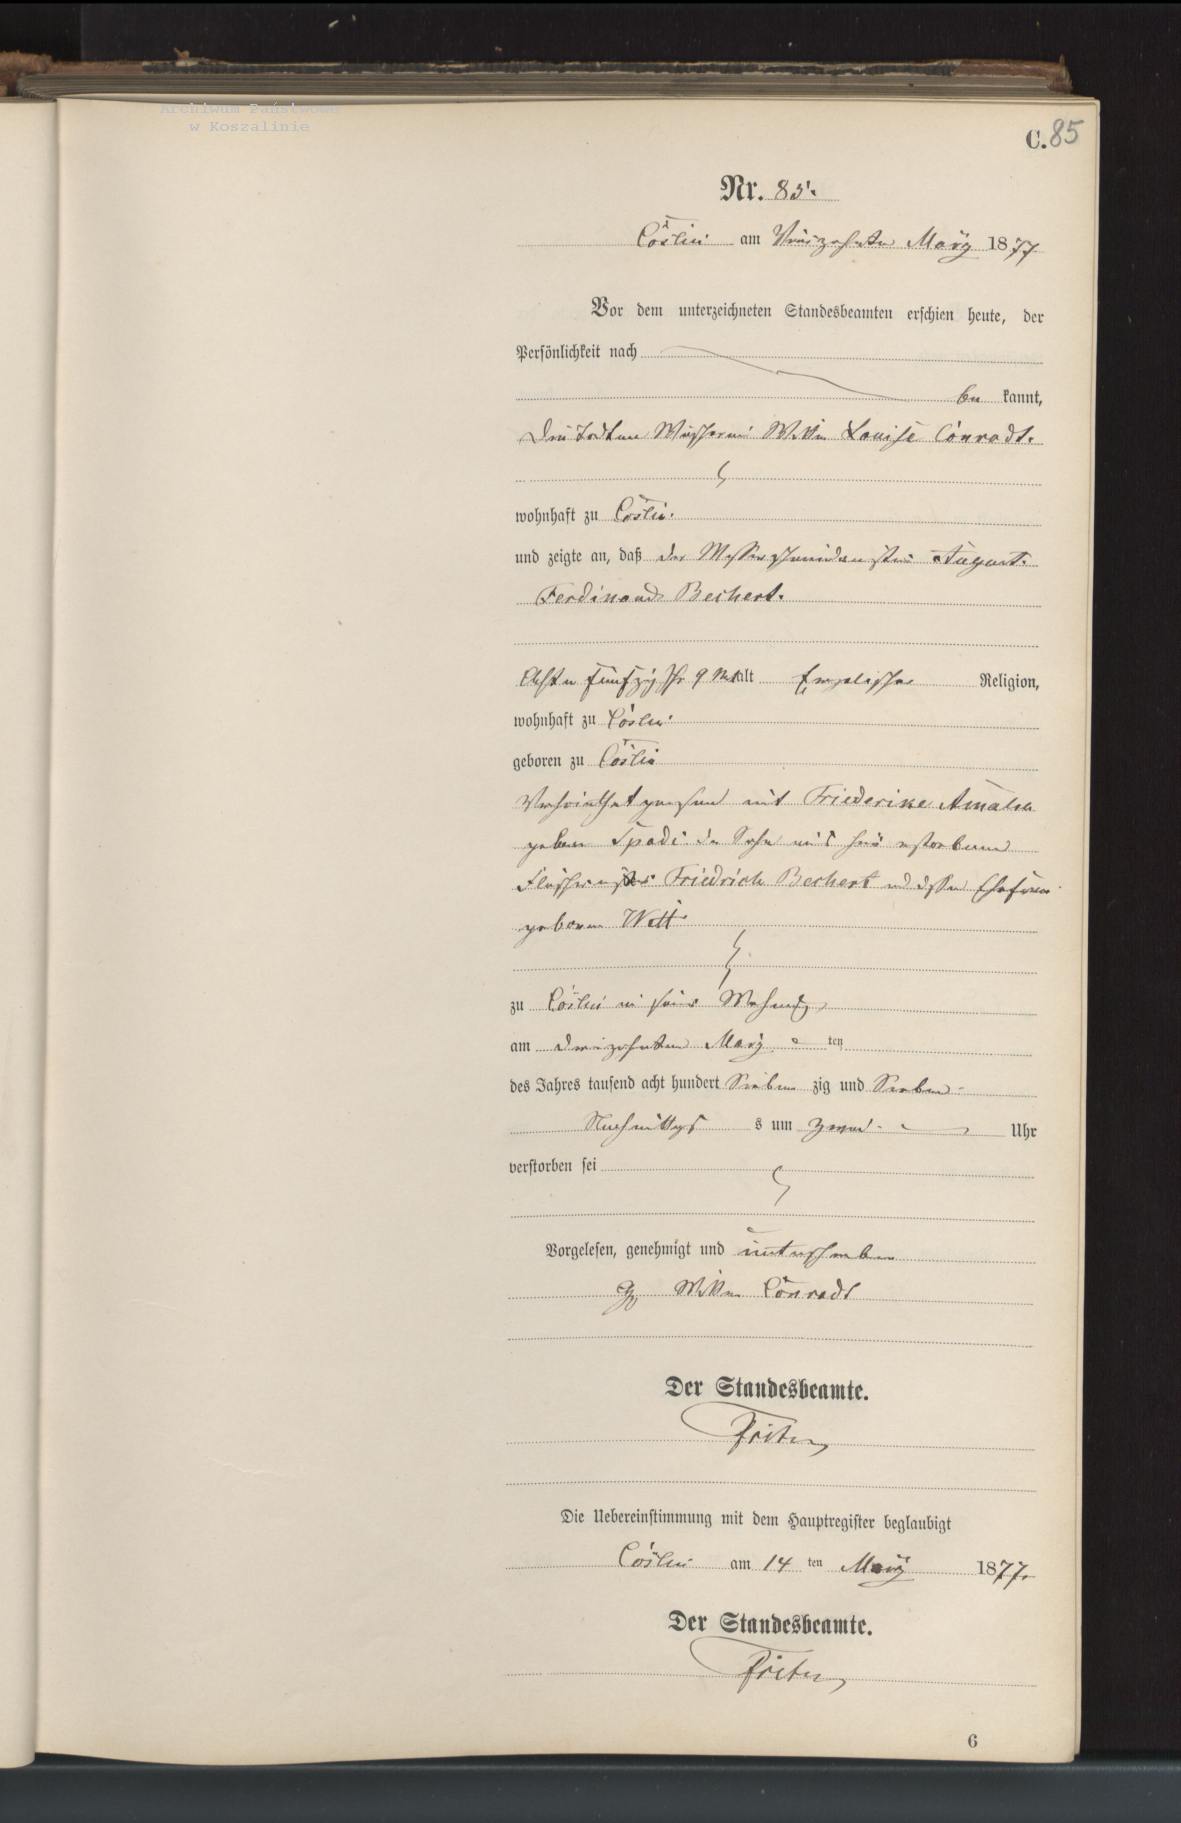 Archiwum Państwowe
w Koszalinie
C. 85
Nr. 85.
Cöslin am Vierzehnten März 1877
Vor dem unterzeichneten Standesbeamten erschien heute, der
Persönlichkeit nach
be kannt,
die Todten Wäscherin Wittwe Louise Conradt.
wohnhaft zu Cöslin.
und zeigte an, daß der Messerschmiedemeister August
Ferdinand Bechert.
Acht u fünfzig Jhr 9 Mt alt Evangelischer Religion,
wohnhaft zu Cöslin.
geboren zu Cöslin
Verheirathet gewesen mit Friederike Amalia
geboren Spadi der Sohn des hier verstorbenen
Fleischermeister Friedrich Bechert und dessen Ehefrau
geborene Witt
zu Cöslin in seiner Wohnung
am dreizehnten März ten
des Jahres tausend acht hundert Sieben zig und Sieben
Nachmittags s um zwei Uhr
verstorben sei
Vorgelesen, genehmigt und unterschrieben
gz Wittwe Conradt
Der Standesbeamte.
Die Uebereinstimmung mit dem Hauptregister beglaubigt
Cöslin am 14 ten März 1877.
Der Standesbeamte.
6